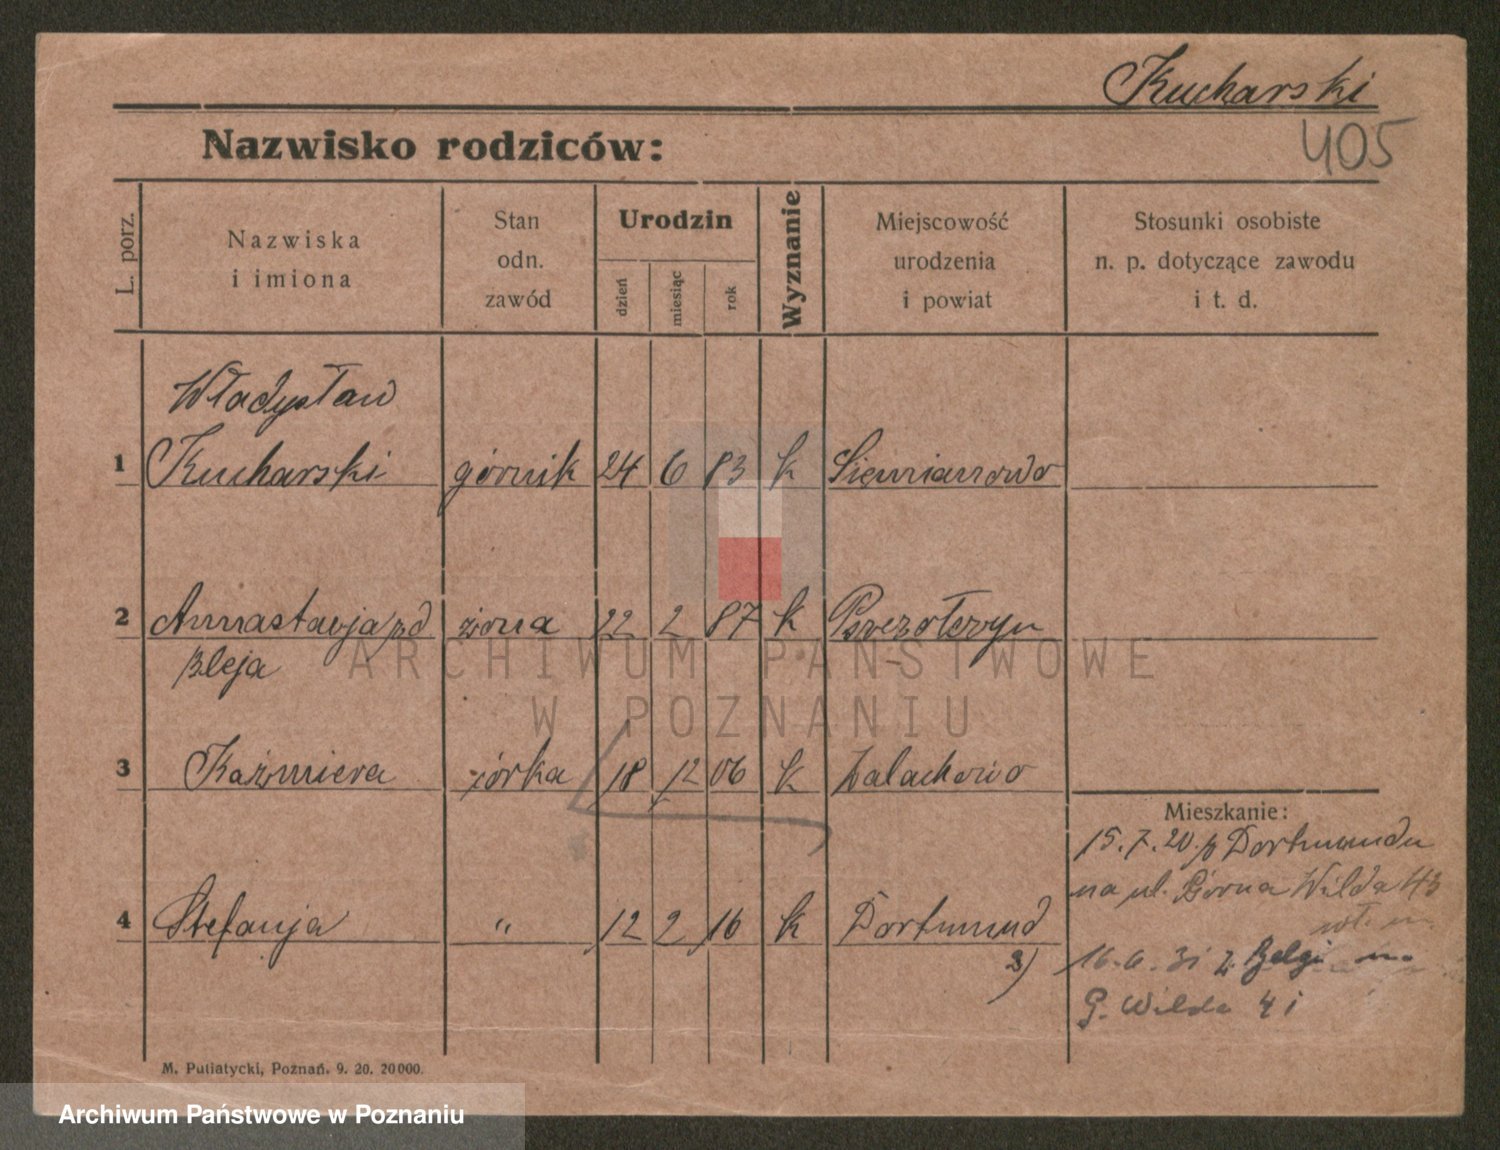 Kucharski
405
Nazwisko rodziców:
L. porz.
Nazwiska
i imiona
Stan
odn.
zawód
Urodzin
dzień
miesiąc
rok
Wyznanie
Miejscowość
urodzenia
i powiat
Stosunki osobiste
n. p. dotyczące zawodu
i t. d.
Władysław
1 Kucharski górnik 24 6 83 k Siemianowo
2 żona 22 2 87 k
3 Kaźmiera córka 18 12 06 k Zalachowo
Mieszkanie:
15.7.20 Dortmundu
na ul. Górna Wilda 43
4 Stefanja " 12 2 16 k Dortmund
3)
16.6.31 z Belgi
G. Wilda 41
M. Putiatycki, Poznań. 9. 20. 20000.
ARCHIWUM PAŃSTWOWE
W POZNANIU
Archiwum Państwowe w Poznaniu